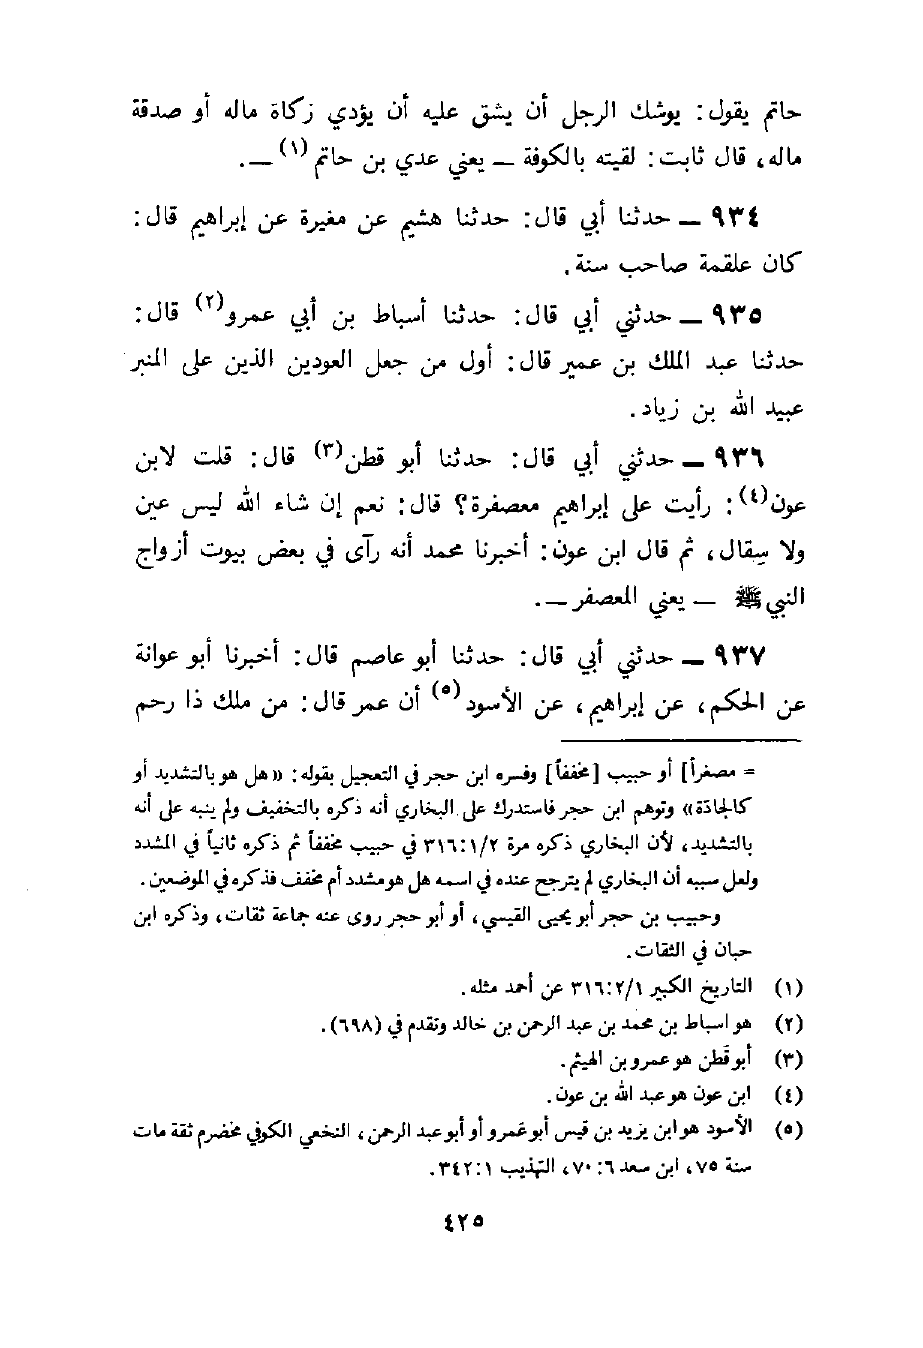 حاتم يقول: يوشك الرجل أن يشق عليه أن يؤدي زكاة ماله أو صدقة
ماله، قال ثابت: لقيته بالكوفة — يعني عدي بن حاتم (١) —.
٩٣٤ — حدثنا أبي قال: حدثنا هشيم عن مغيرة عن إبراهيم قال:
كان علقمة صاحب سنة.
٩٣٥ — حدثني أبي قال: حدثنا أسباط بن أبي عمرو(٢) قال:
حدثنا عبد الملك بن عمير قال: أول من جعل العودين الذين على المنبر
عبيد الله بن زياد.
٩٣٦ — حدثني أبي قال: حدثنا أبو قطن(٣) قال: قلت لابن
عون(٤): رأيت على إبراهيم معصفرة؟ قال: نعم إن شاء الله ليس عين
ولا سِقال، ثم قال ابن عون: أخبرنا محمد أنه رآى في بعض بيوت أزواج
النبي ﷺ — يعني المعصفر —.
٩٣٧ — حدثني أبي قال: حدثنا أبو عاصم قال: أخبرنا أبو عوانة
عن الحكم، عن إبراهيم، عن الأسود(٥) أن عمر قال: من ملك ذا رحم
= مصغراً] أو حبيب [مخففاً] وفسره ابن حجر في التعجيل بقوله: «هل هو بالتشديد أو
كالجادّة» وتوهم ابن حجر فاستدرك على البخاري أنه ذكره بالتخفيف ولم ينبه على أنه
بالتشديد، لأن البخاري ذكره مرة ٣١٦:١/٢ في حبيب مخففاً ثم ذكره ثانياً في المشدد
ولعل سببه أن البخاري لم يترجح عنده في اسمه هل هو مشدد أم مخفف فذكره في الموضعين.
وحبيب بن حجر أبو يحيى القيسي، أو أبو حجر روى عنه جماعة ثقات، وذكره ابن
حبان في الثقات.
(١) التاريخ الكبير ٣١٦:٢/١ عن أحمد مثله.
(٢) هو اسباط بن محمد بن عبد الرحمن بن خالد وتقدم في (٦٩٨).
(٣) أبو قَطن هو عمرو بن الهيثم.
(٤) ابن عون هو عبد الله بن عون.
(٥) الأسود هو ابن يزيد بن قيس أبو عمرو أو أبو عبد الرحمن، النخعي الكوفي مخضرم ثقة مات
سنة ٧٥، ابن سعد ٦: ٧٠، التهذيب ٣٤٢:١.
٤٢٥